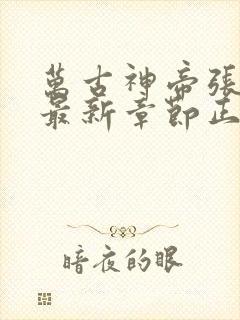 萬古神帝張
最新章節正
暗夜的眼